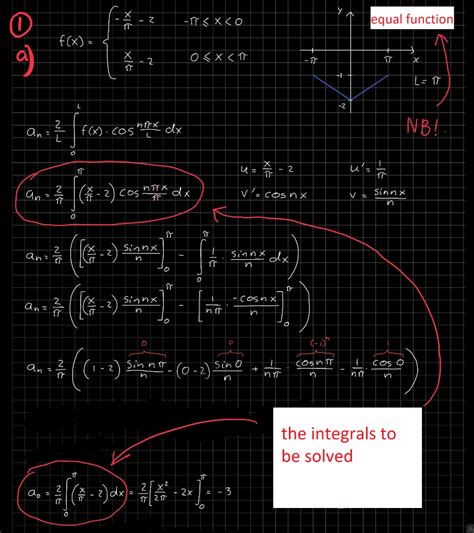 ① a)
f(x) = { -x/π - 2   -π ≤ x < 0
x/π - 2   0 ≤ x < π
y
equal function
-π   π   x
-1
-2
L = π
NB!
a_n = 2/L ∫_0^L f(x) · cos nπx/L dx
a_n = 2/π ∫_0^π (x/π - 2) cos nπx/π dx
u = x/π - 2   u' = 1/π
v' = cos nx   v = sin nx/n
a_n = 2/π ([(x/π - 2) sin nx/n]_0^π - ∫_0^π 1/π · sin nx/n dx)
a_n = 2/π ([(x/π - 2) sin nx/n]_0^π - [1/nπ · -cos nx/n]_0^π)
0   0   (-1)^n   1
a_n = 2/π ((1-2) sin nπ/n - (0-2) sin 0/n + 1/nπ · cos nπ/n - 1/nπ · cos 0/n)
the integrals to
be solved
a_0 = 2/π ∫_0^π (x/π - 2) dx = 2/π [x²/2π - 2x]_0^π = -3